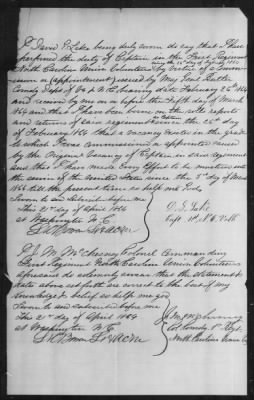 I David P. Like being duly sworn do say that I have
performed the duty of Captain in the First Regiment
North Carolina Union Volunteers by virtue of a Commis-
sion or (appointment) issued by Maj Genl Butler
Comdg Dept of Va & N.C. bearing date February 25th 1864
and received by me on or before the fifth day of March
1864 and that I have been borne on the rolls reports
and returns of said regiment since the 25th day
of February 1864 that a vacancy existed in the grade
to which I was commission or appointed caused
by the Original Vacancy of Captain in said regiment
and that I have made every effort to be mustered into
the service of the United States since the 5th day of March
1864 till the present time so help me God,
Sworn to and subscribed before me
This 21st day of April 1864
at Washington N.C.
Capt. 1st N.C. Vols
I J. M. McChesney Colonel Commanding
First Regiment North Carolina Union Volunteers
aforesaid do solemnly swear that the statement &
dates above set forth are correct to the best of my
knowledge & belief so help me God
Sworn to and subscribed before me
This 21st day of April 1864
at Washington N.C.
J. M. McChesney
Col Comdg 1st Regt.
North Carolina Union Vols